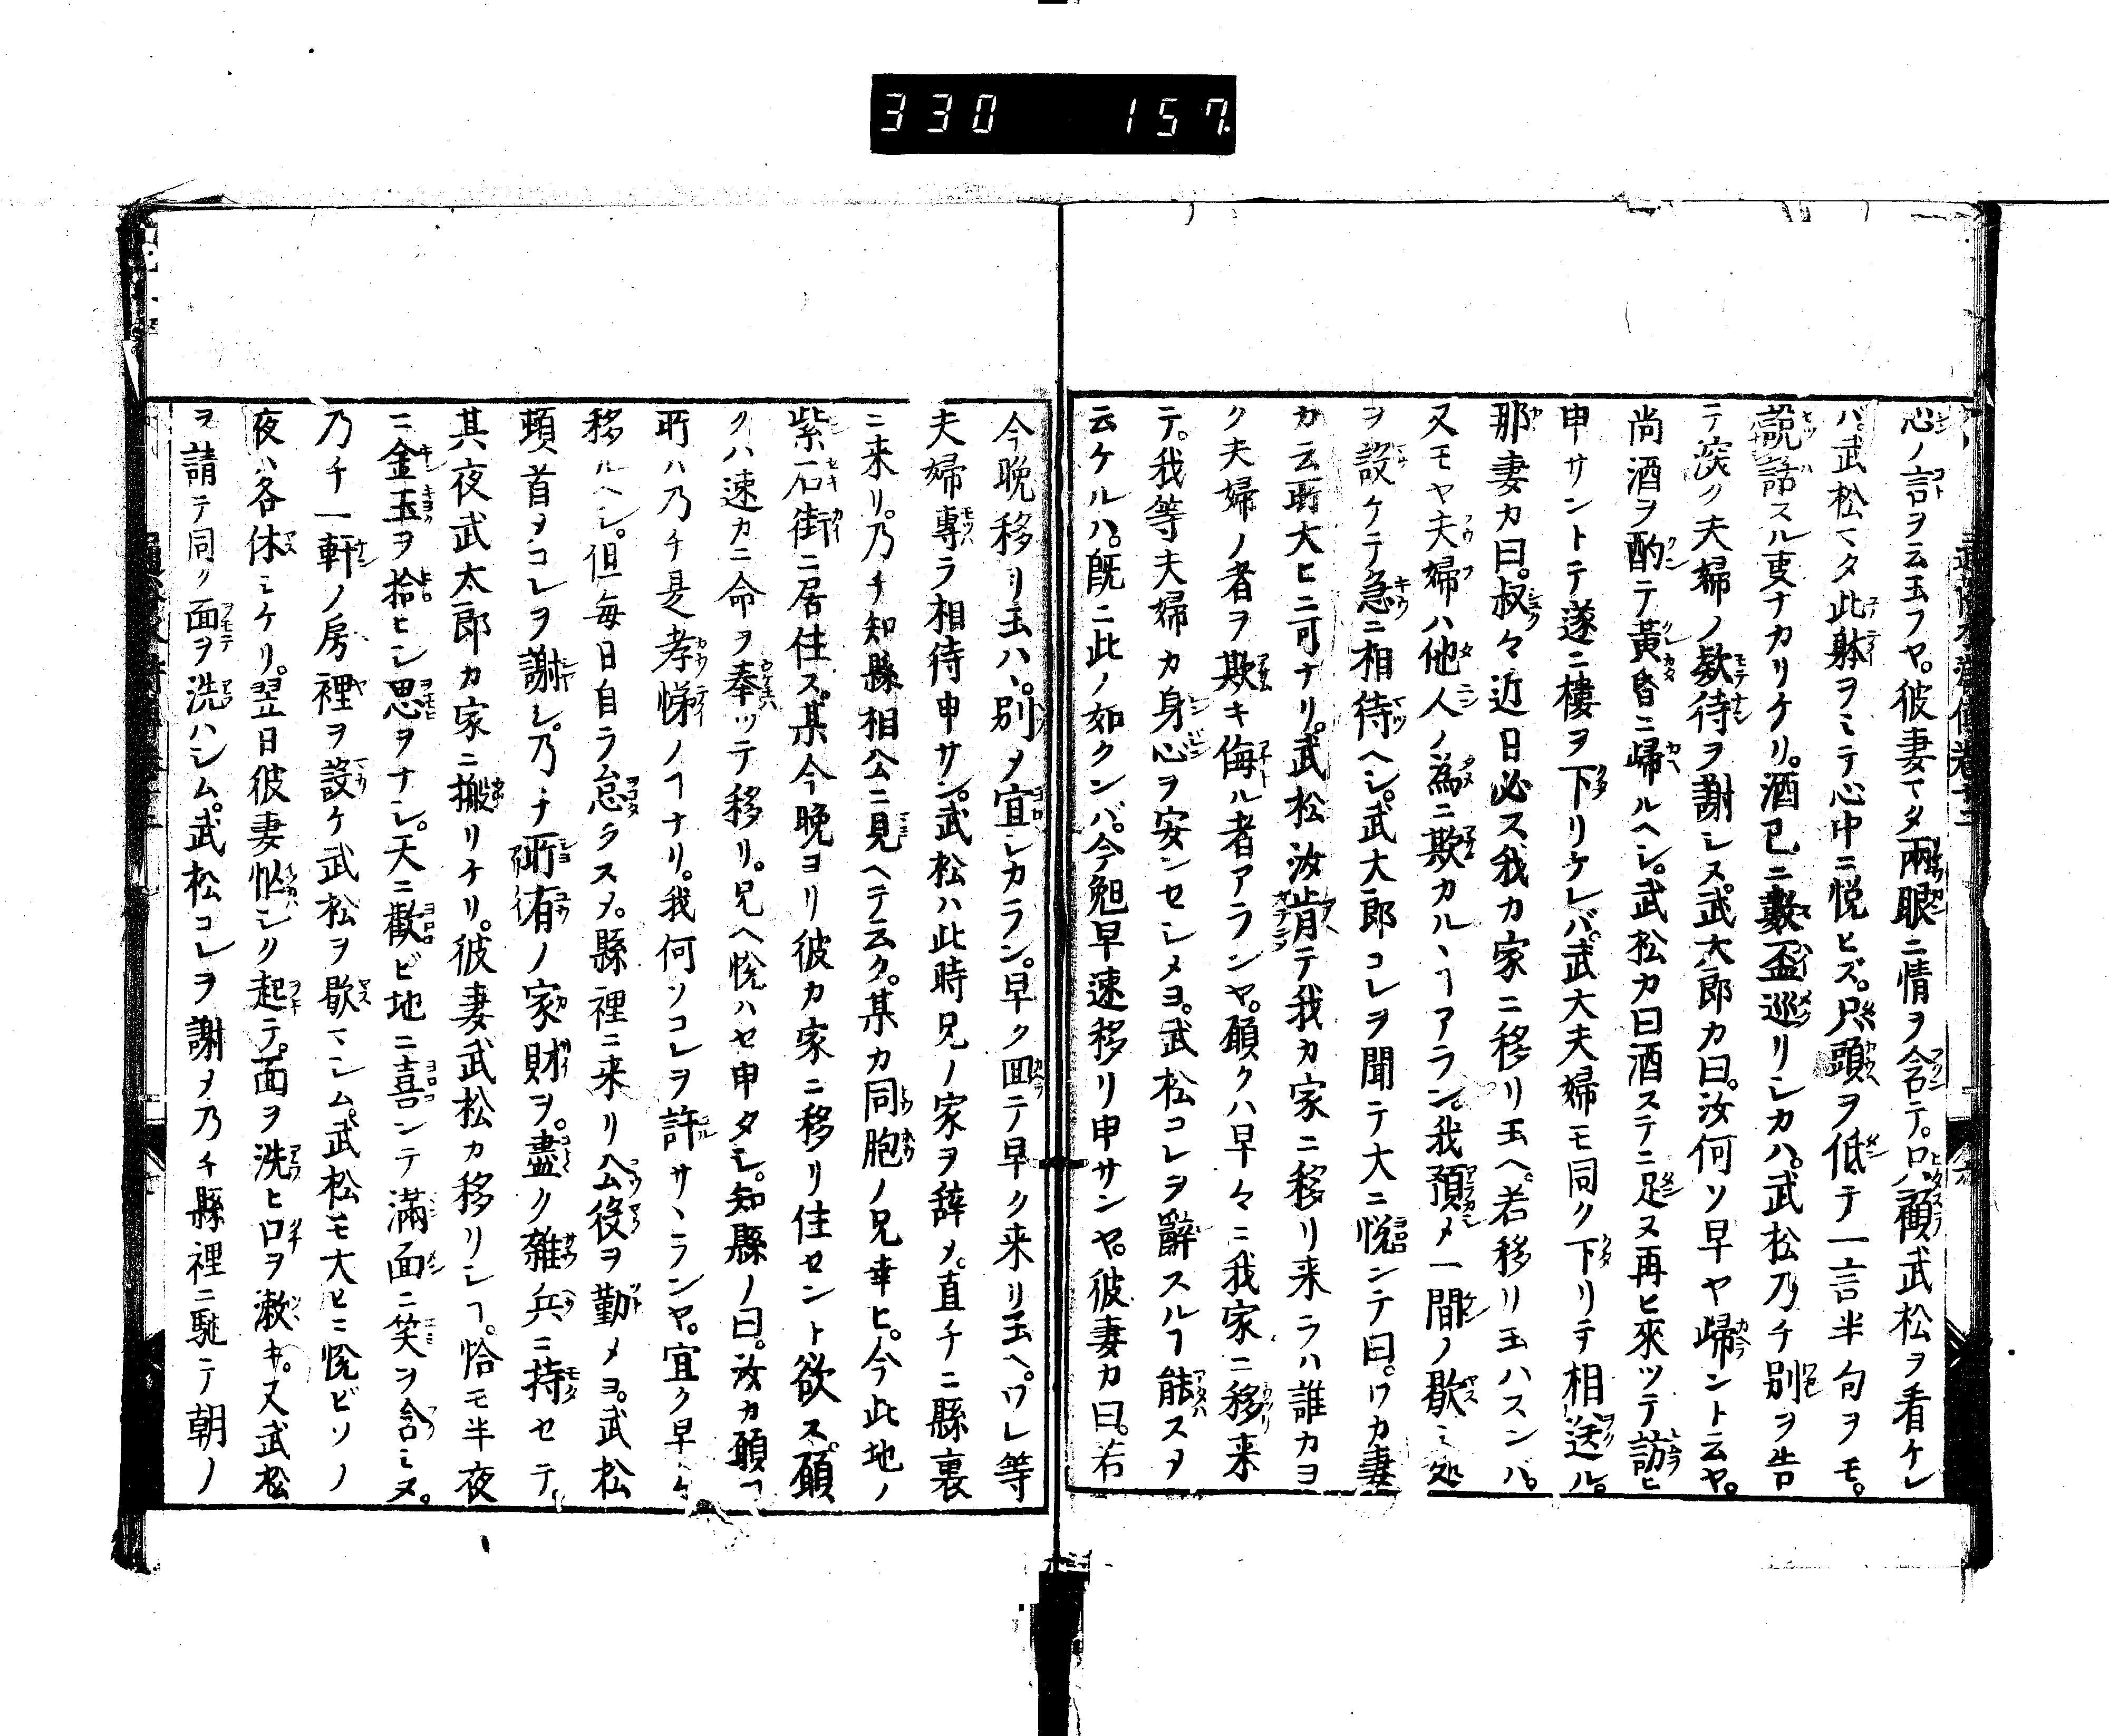 330 157
心ノ言ヲ云玉フヤ。彼妻マタ兩眼ニ情ヲ含テ。只顧武松ヲ看ケレ
バ。武松マタ此躰ヲミテ心中ニ悦ヒズ。只頭ヲ低テ一言半句ヲモ。
説話スル叓ナカリケリ。酒已ニ數盃巡リシカハ。武松乃チ別ヲ告
テ深ク夫婦ノ欵待ヲ謝シヌ。武大郎カ曰。汝何ソ早ヤ歸ント云ヤ。
尚酒ヲ酌テ黄昏ニ歸ルヘシ。武松カ曰酒ステニ足ヌ再ヒ來ツテ訪ヒ
申サントテ遂ニ樓ヲ下リケレバ。武大夫婦モ同ク下リテ相送ル。
那妻カ曰。叔々近日必ス我カ家ニ移リ玉ヘ。若移リ玉ハスンハ。
又モヤ夫婦ハ他人ノ為ニ欺カルヽヿアラン。我預メ一間ノ歇ミ処
ヲ設ケテ急ニ相待ヘシ。武大郎コレヲ聞テ大ニ悦ンテ曰。ワカ妻
カ云所大ヒニ可ナリ。武松汝肯テ我カ家ニ移リ来ラハ誰カヨ
ク夫婦ノ者ヲ欺キ侮ル者アランヤ。願クハ早々ニ我家ニ移来
テ。我等夫婦カ身心ヲ安ンセシメヨ。武松コレヲ辭スルヿ能スメ
云ケルハ。既ニ此ノ如クンバ。今晩早速移リ申サンヤ。彼妻カ曰。若
今晩移リ玉ハヽ。別メ宜シカラン。早ク回テ早ク来リ玉ヘ。ワレ等
夫婦專ラ相待申サン。武松ハ此時兄ノ家ヲ辞メ。直チニ縣裏
ニ来リ。乃チ知縣相公ニ見ヘテ云ク。某カ同胞ノ兄幸ヒ。今此地ノ
紫石街ニ居住ス。某今晩ヨリ彼カ家ニ移リ住セント欲ス。願
クハ速カニ命ヲ奉ツテ移リ。兄ヘ悦ハセ申タシ。知縣ノ曰。汝カ願フ
所ハ乃チ是孝悌ノヿナリ。我何ソコレヲ許サヽランヤ。宜ク早ヽ
移ルヘシ。但毎日自ラ怠ラスメ。縣裡ニ来リ公役ヲ勤メヨ。武松
頓首ヲコレヲ謝シ。乃チ所有ノ家財ヲ。盡ク雜兵ニ持セテ。
其夜武太郎カ家ニ搬リケリ。彼妻武松カ移リシヿ。恰モ半夜
ニ金玉ヲ拾ヒシ思ヲナシ。天ニ歡ビ地ニ喜ンテ滿面ニ笑ヲ含ミヌ。
乃チ一軒ノ房裡ヲ設ケ武松ヲ歇マシム。武松モ大ヒニ悦ビソノ
夜ハ各休ミケリ。翌日彼妻忙シク起テ。面ヲ洗ヒ口ヲ漱キ。又武松
ヲ請テ同ク面ヲ洗ハシム。武松コレヲ謝メ乃チ縣裡ニ馳テ朝ノ